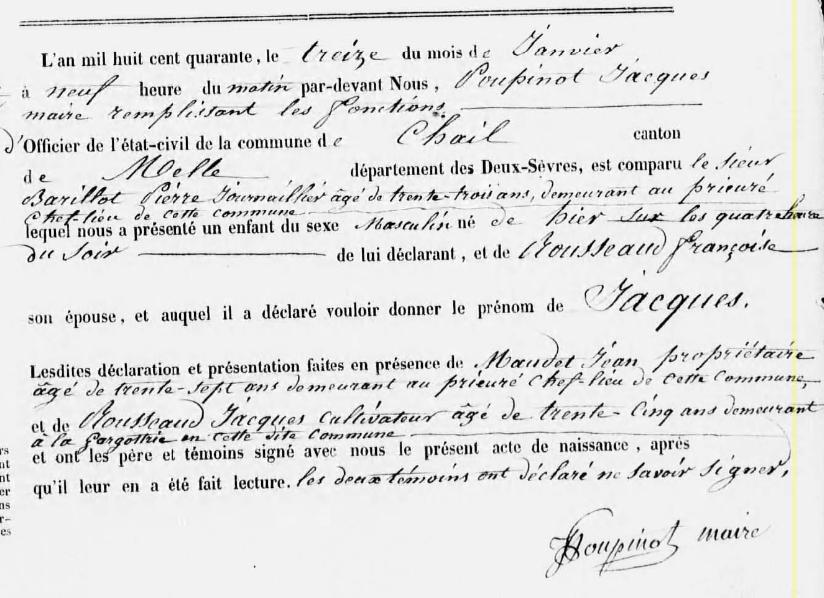 L'an mil huit cent quarante, le treize du mois de Janvier
à neuf heure du matin par-devant Nous, Poupinot Jacques
maire remplissant les fonctions
d'Officier de l'état-civil de la commune de Chail canton
de Melle département des Deux-Sèvres, est comparu le sieur
Barillot Pierre Journaillier âgé de trente-trois ans, demeurant au prieuré
Chef-lieu de cette commune
lequel nous a présenté un enfant du sexe Masculin né de hier sur les quatre heure
du Soir de lui déclarant, et de Rousseaud françoise
son épouse, et auquel il a déclaré vouloir donner le prénom de Jacques.
Lesdites déclaration et présentation faites en présence de Maudet Jean propriétaire
âgé de trente-sept ans demeurant au prieuré Chef-lieu de cette Commune,
et de Rousseaud Jacques cultivateur âgé de trente-Cinq ans demeurant
à la en cette dite Commune
et ont les père et témoins signé avec nous le présent acte de naissance, après
qu'il leur en a été fait lecture. les deux témoins ont déclaré ne savoir signer,
Poupinot maire
rs
nt
nt
er
ns
r-
es